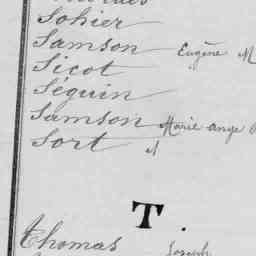 Sohier
Samson Eugène M
Sicot "
Séguin
Samson Marie ange
Sort "
T.
Thomas Joseph